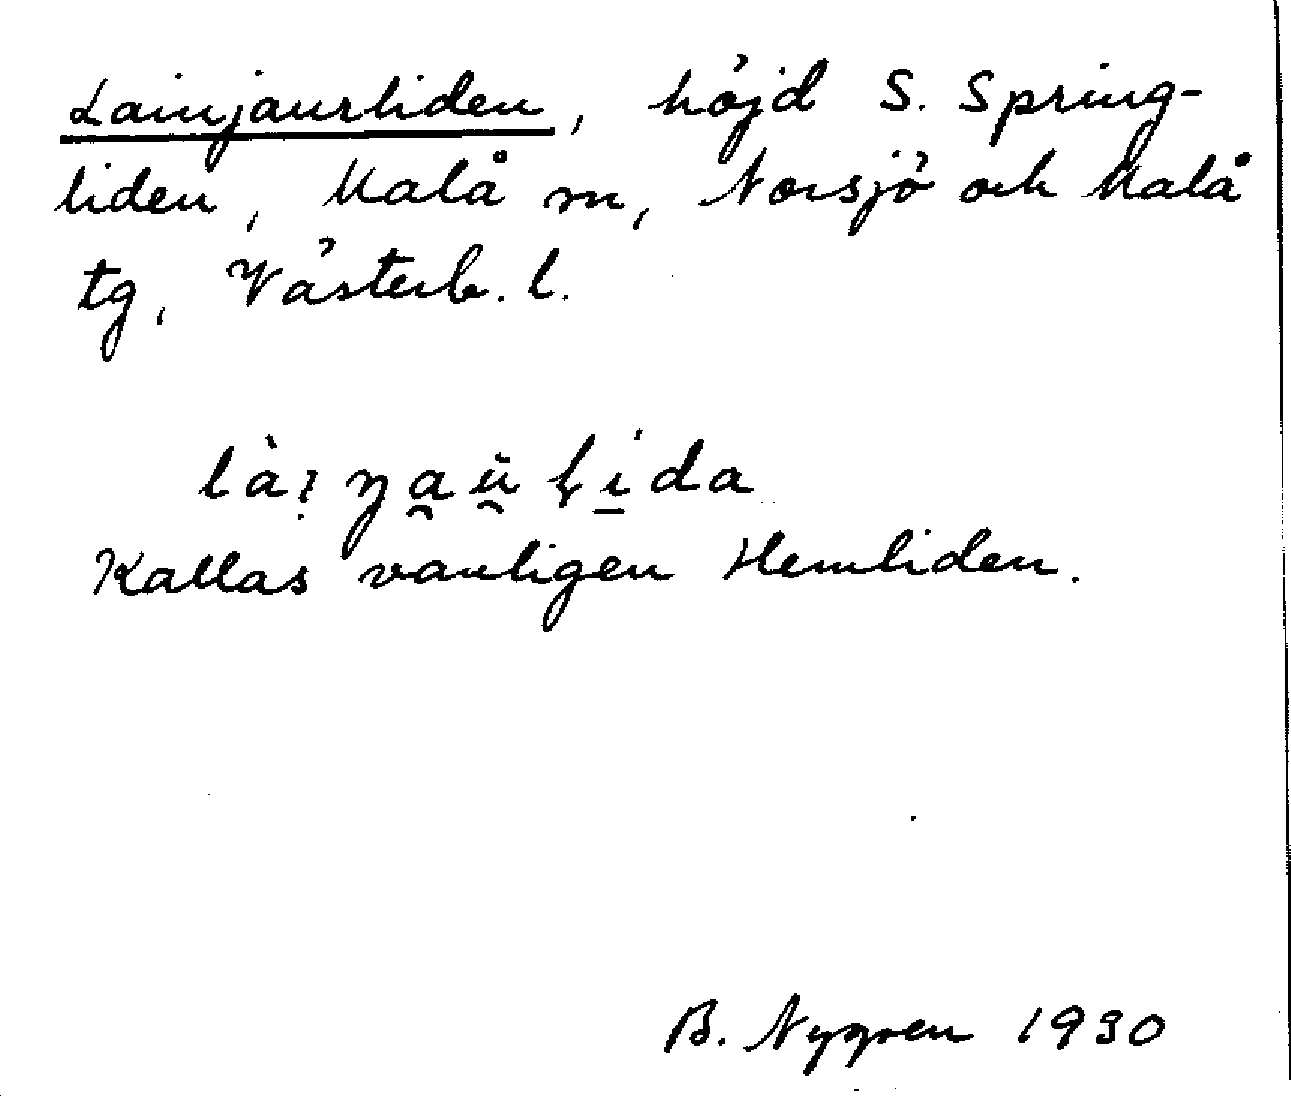 Lainjaursliden, höjd S. Spring-
liden, Malå m, Norsjö och Malå
tg, Västerb. l.
Kallas vanligen Hemliden.
B. Nygren 1930